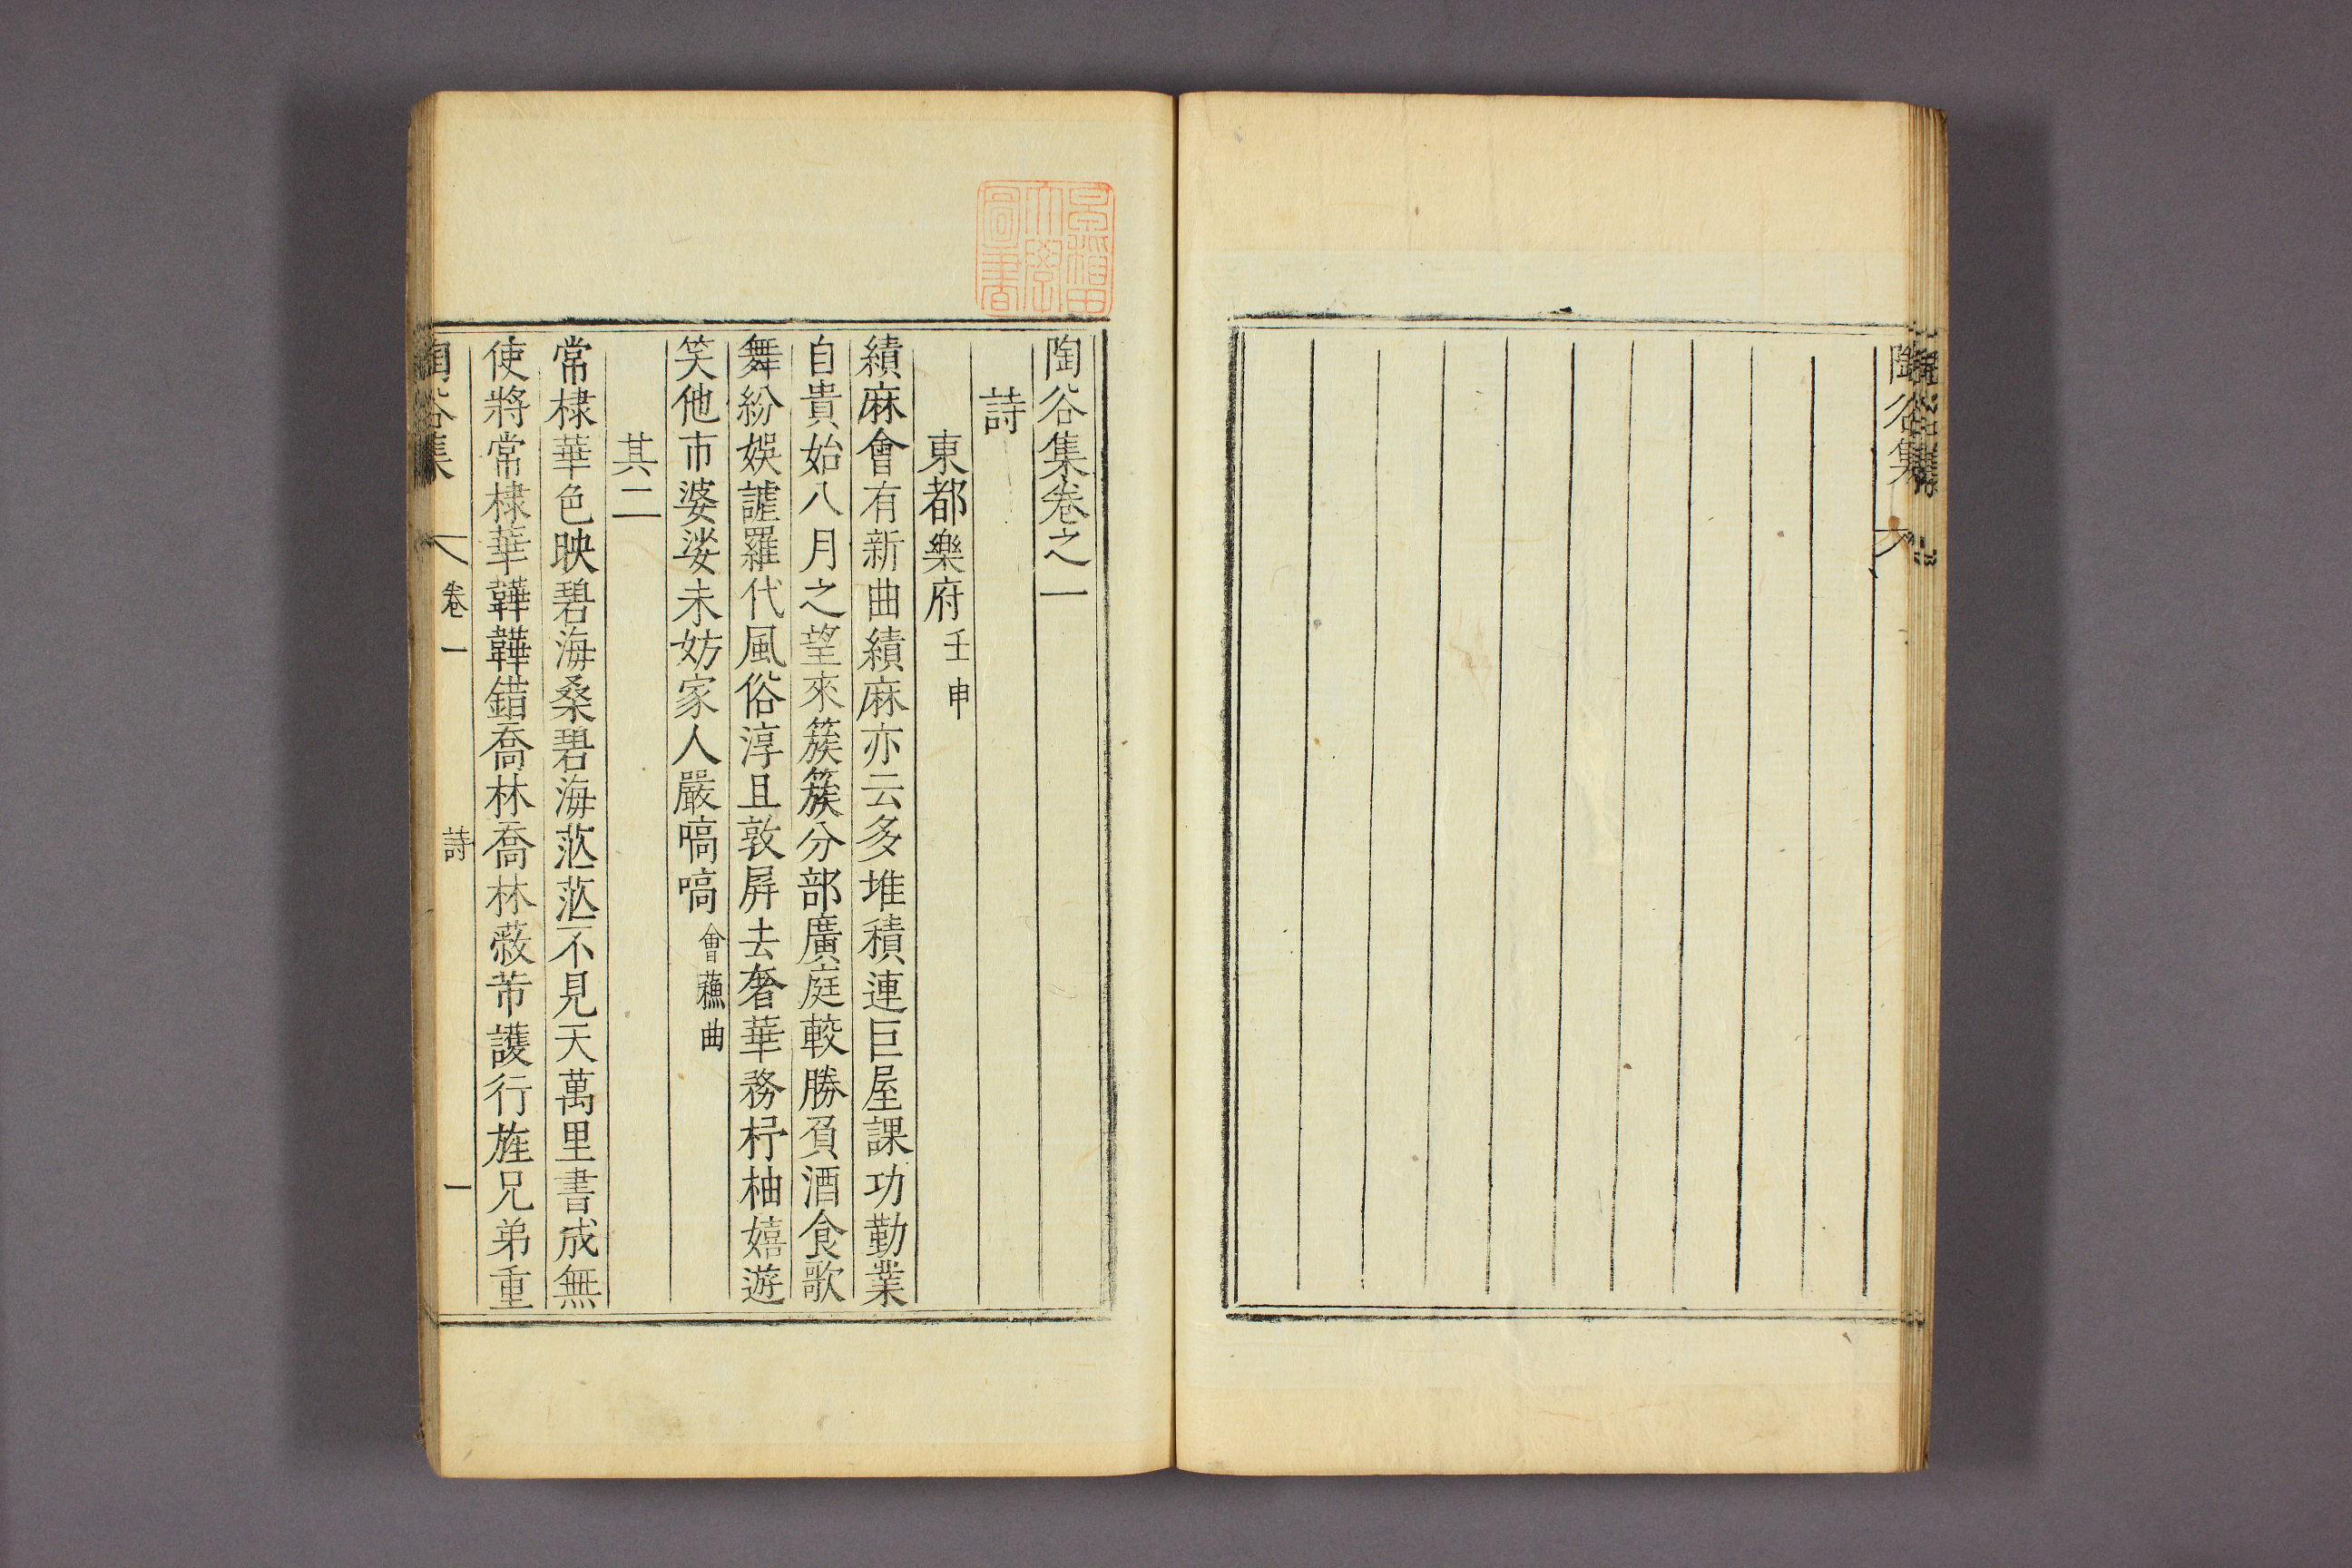 陶谷集
陶谷集卷之一
詩
東都樂府壬申
績麻會有新曲績麻亦云多堆積連巨屋課功勤業
自貴始八月之望來簇簇分部廣庭較勝負酒食歌
舞紛娛謔羅代風俗淳且敦屛去奢華務杼柚嬉遊
笑他市婆娑未妨家人嚴嗃嗃會蘓曲
其二
常棣華色映碧海桑碧海茫茫不見天萬里書成無
使將常棣華韡韡錯喬林喬林蔽芾護行旌兄弟重
陶谷集
卷一
詩
一
早稻田大學圖書